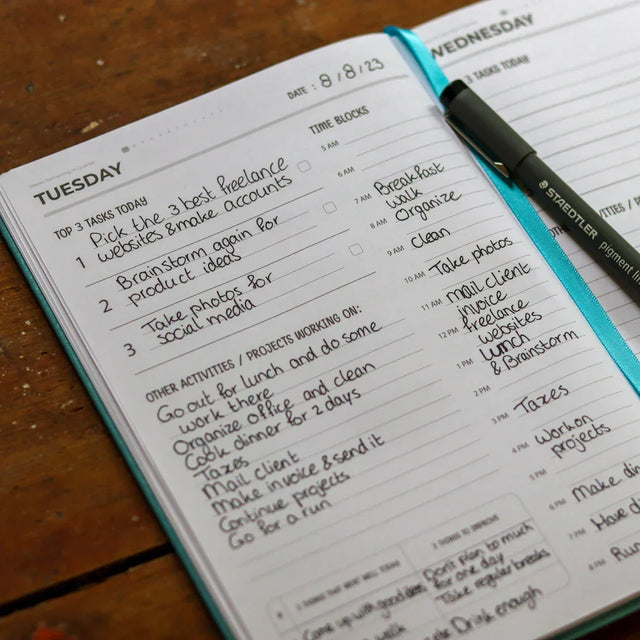 TUESDAY
DATE: 8/8/23
TOP 3 TASKS TODAY
1 Pick the 3 best freelance
websites & make accounts
2 Brainstorm again for
product ideas
3 Take photos for
social media
OTHER ACTIVITIES / PROJECTS WORKING ON:
Go out for lunch and do some
work there
Organize office and clean
Cook dinner for 2 days
Taxes
Mail client
Make invoice & send it
Continue projects
Go for a run
TIME BLOCKS
5 AM
6 AM
7 AM Breakfast
walk
8 AM Organize
9 AM Clean
10 AM Take photos
11 AM Mail client
invoice
12 PM freelance
websites
1 PM Lunch
& Brainstorm
2 PM
3 PM Taxes
4 PM Work on
projects
5 PM
6 PM Make
7 PM Have
8 PM Run
3 THINGS THAT WENT WELL TODAY
Come up with good
walk
3 THINGS TO IMPROVE
Don't plan to much
for one day
Take regular breaks
Drink enough
WEDNESDAY
3 TASKS TODAY
STAEDTLER
pigment